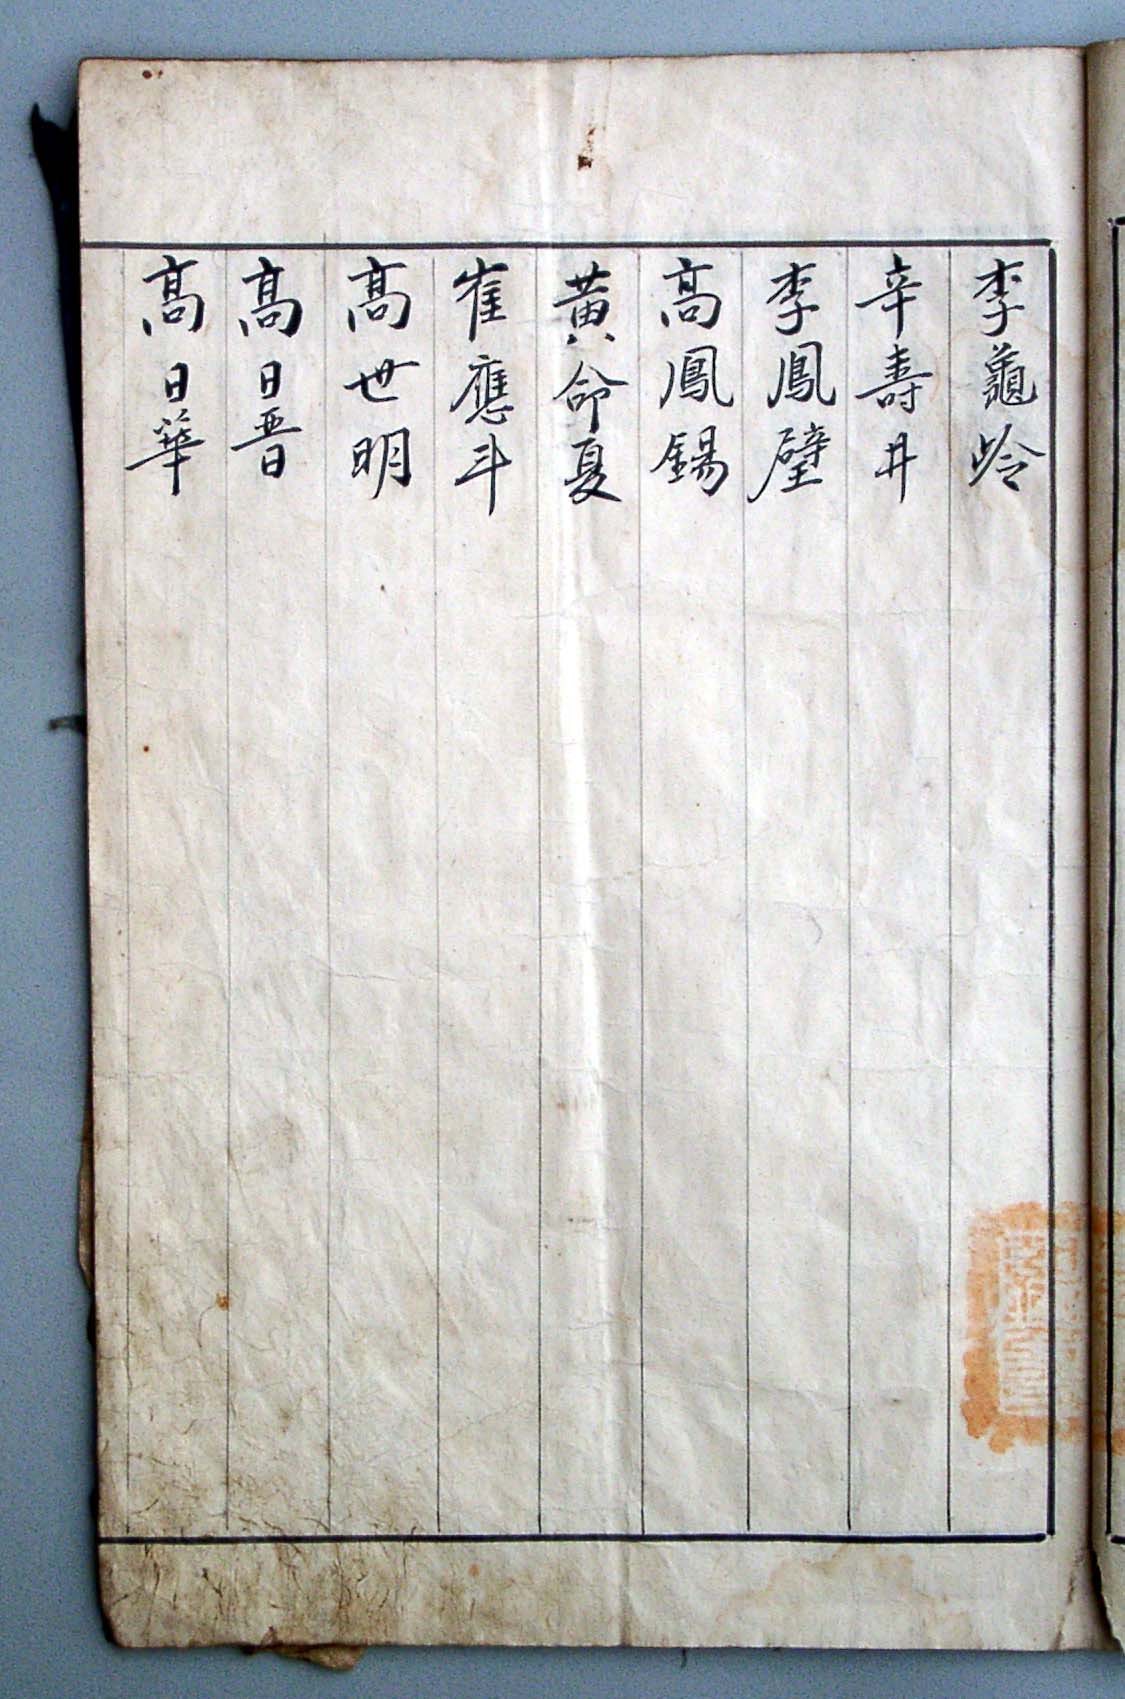 李龜岭
辛壽井
李鳳璧
高鳳錫
黃命夏
崔應斗
高世明
高日晋
高日華